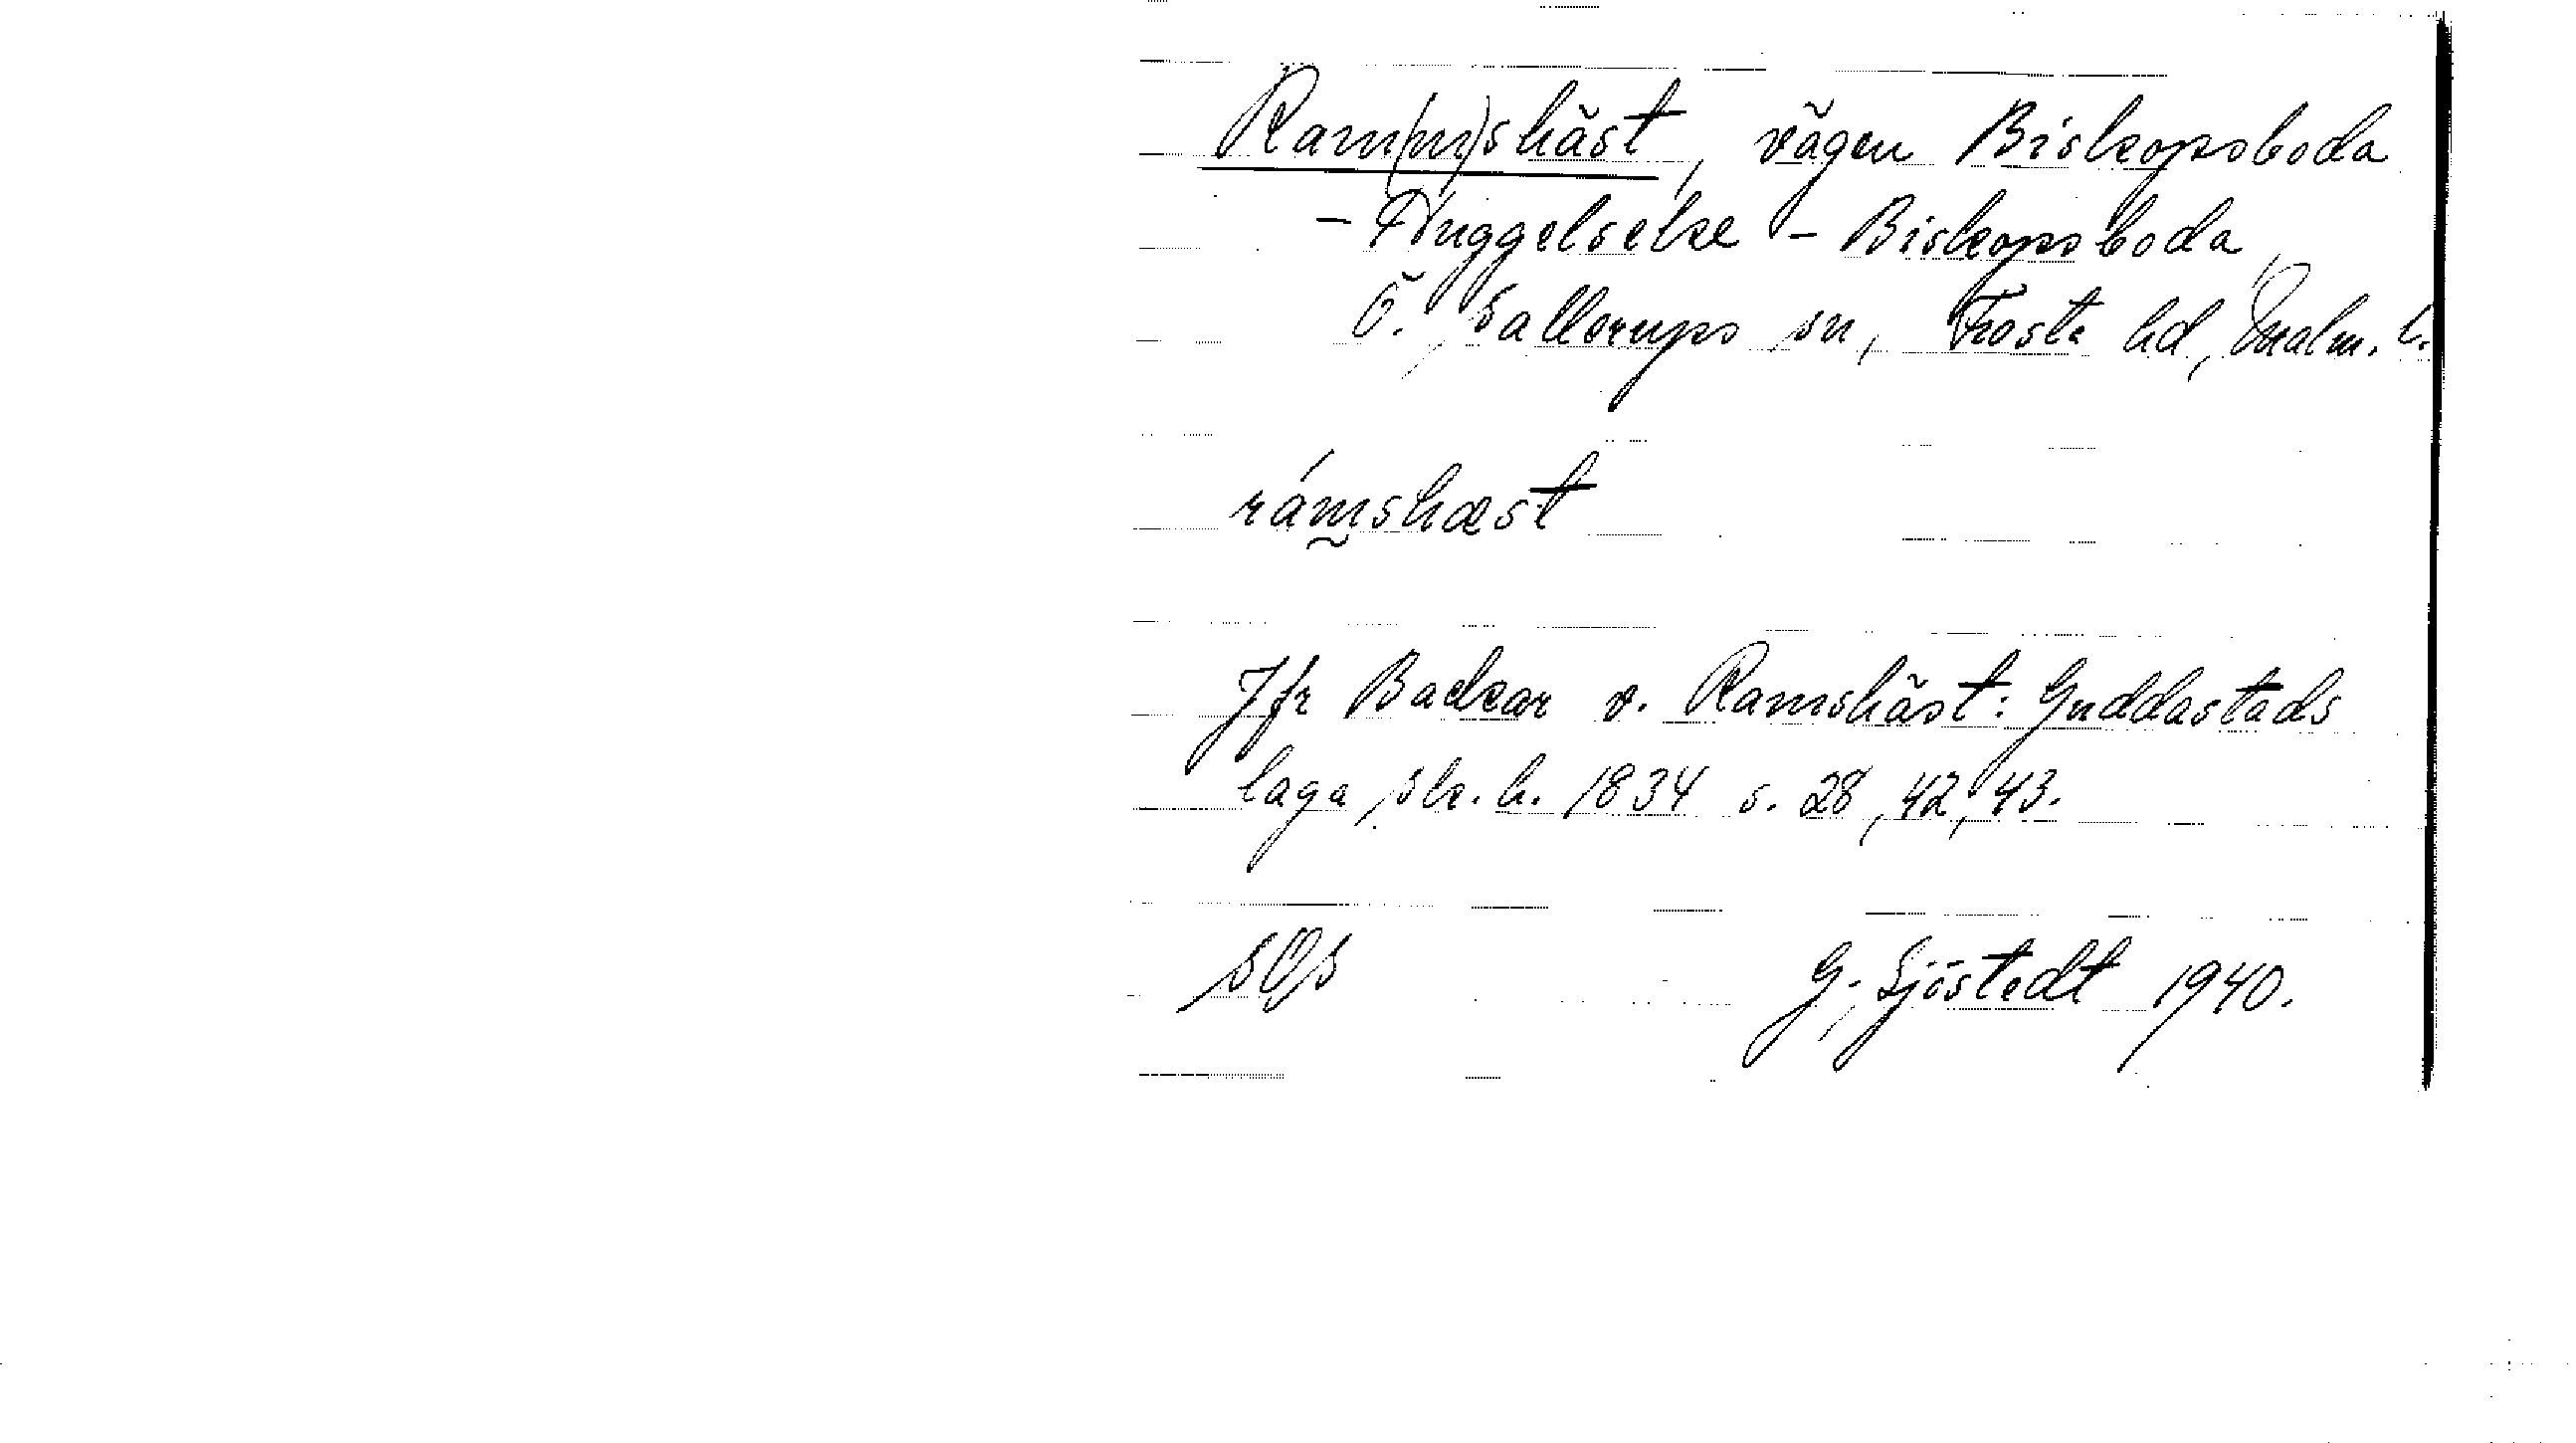 Ram(m)shäst, vägen Biskopsboda
- Huggelseke - Biskopsboda
Ö. Sallerups sn, Frosta hd, Malm. l.
rámshæst
Jfr Backar v. Ramshäst: Guddastads
laga sk. h. 1834 s. 28, 42, 43.
SOS G. Sjöstedt 1940.